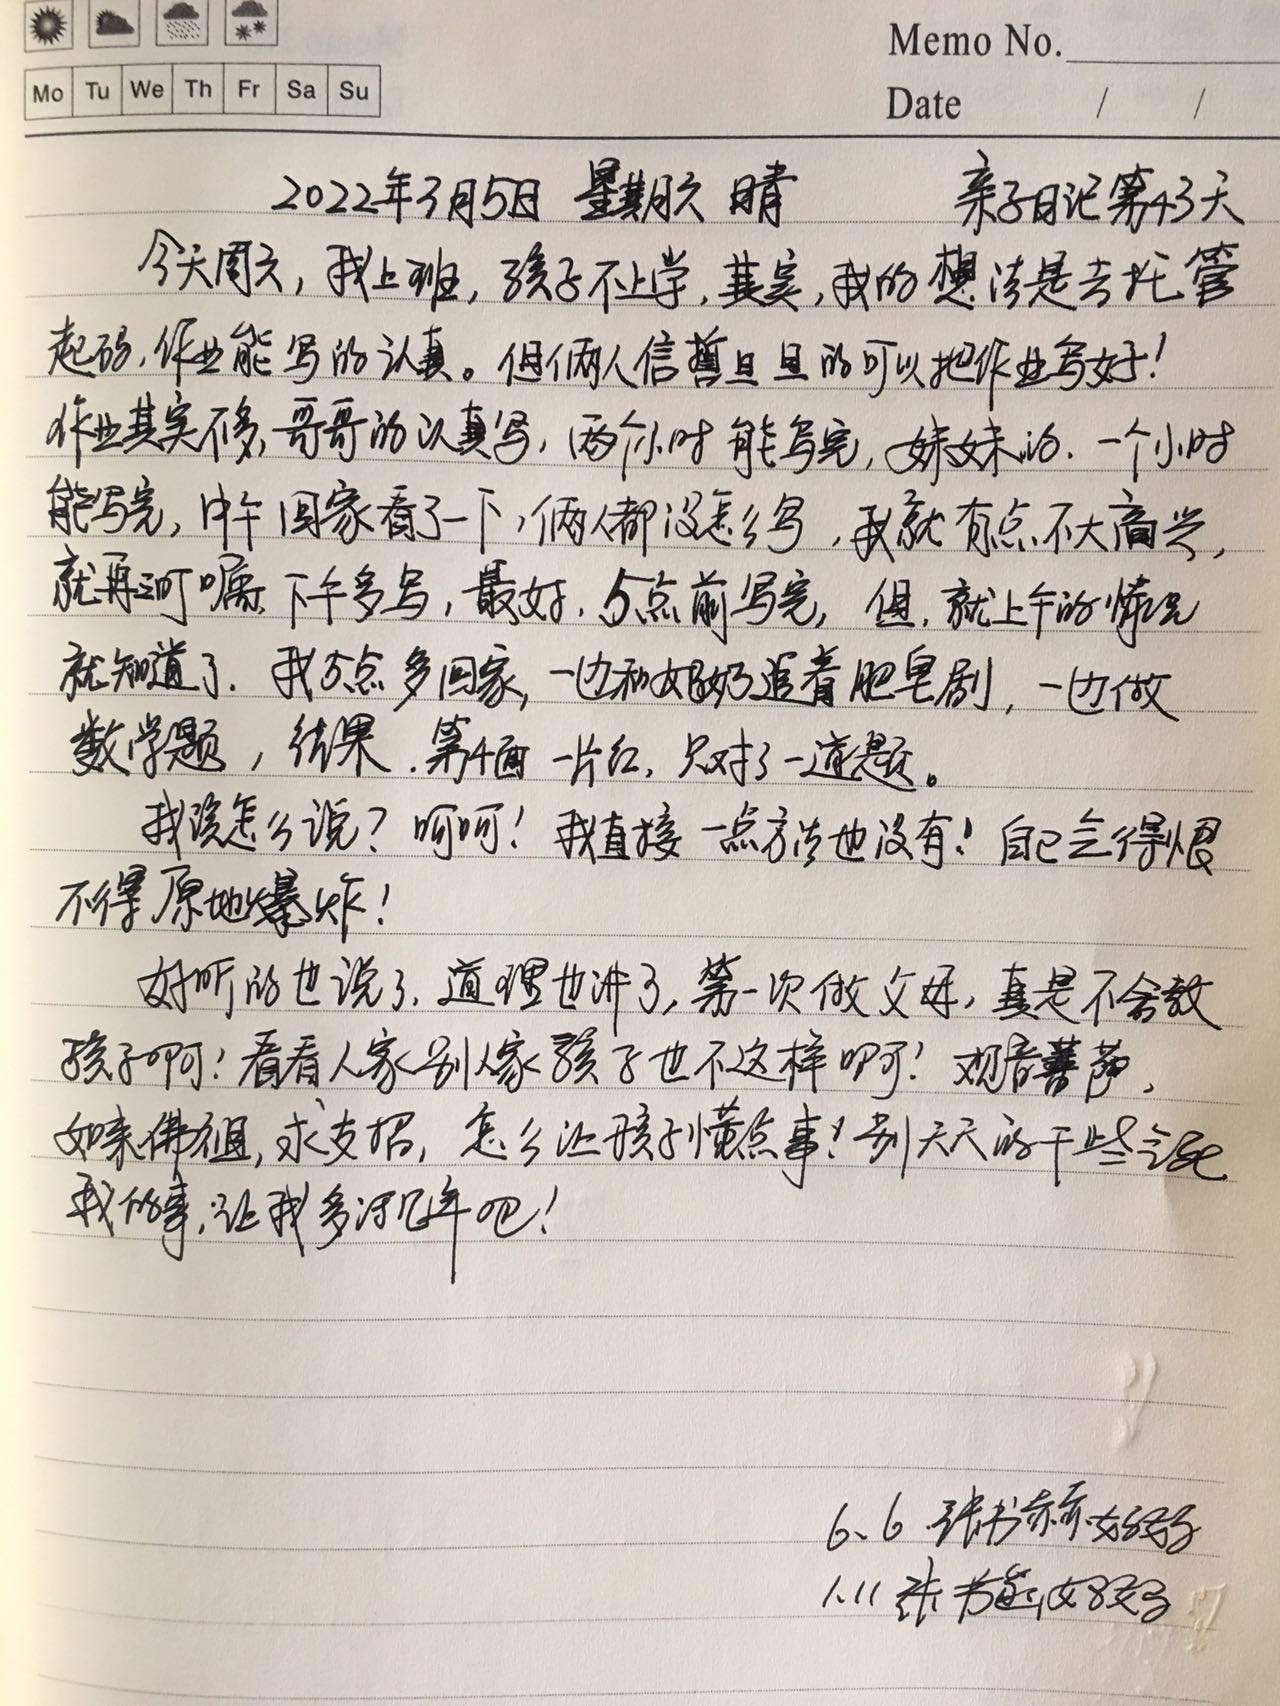 Memo No.
Mo Tu We Th Fr Sa Su
Date / /
2022年3月5日 星期六 晴 亲子日记第43天
今天周六，我上班，孩子不上学，其实，我的想法是去托管
起码，作业能写的认真。但俩人信誓旦旦的可以把作业写好！
作业其实不多，哥哥的认真写，两个小时能写完，妹妹的，一个小时
能写完，中午回家看了一下，俩人都没怎么写，我就有点不大高兴，
就再三叮嘱下午多写，最好，5点前写完，但，就上午的情况
就知道了。我5点多回家，一边和奶奶追着肥皂剧，一边做
数学题，结果，第4面一片红，只对了一道题。
我该怎么说？呵呵！我直接一点方法也没有！自己气得恨
不得原地爆炸！
好听的也说了，道理也讲了，第一次做父母，真是不会教
孩子啊！看看人家别人家孩子也不这样啊！观音菩萨，
如来佛祖，求支招，怎么让孩子懂点事！别天天的干些气死
我的事，让我多活几年吧！
6.6 张书赫妈妈
1.11 张书 妈妈